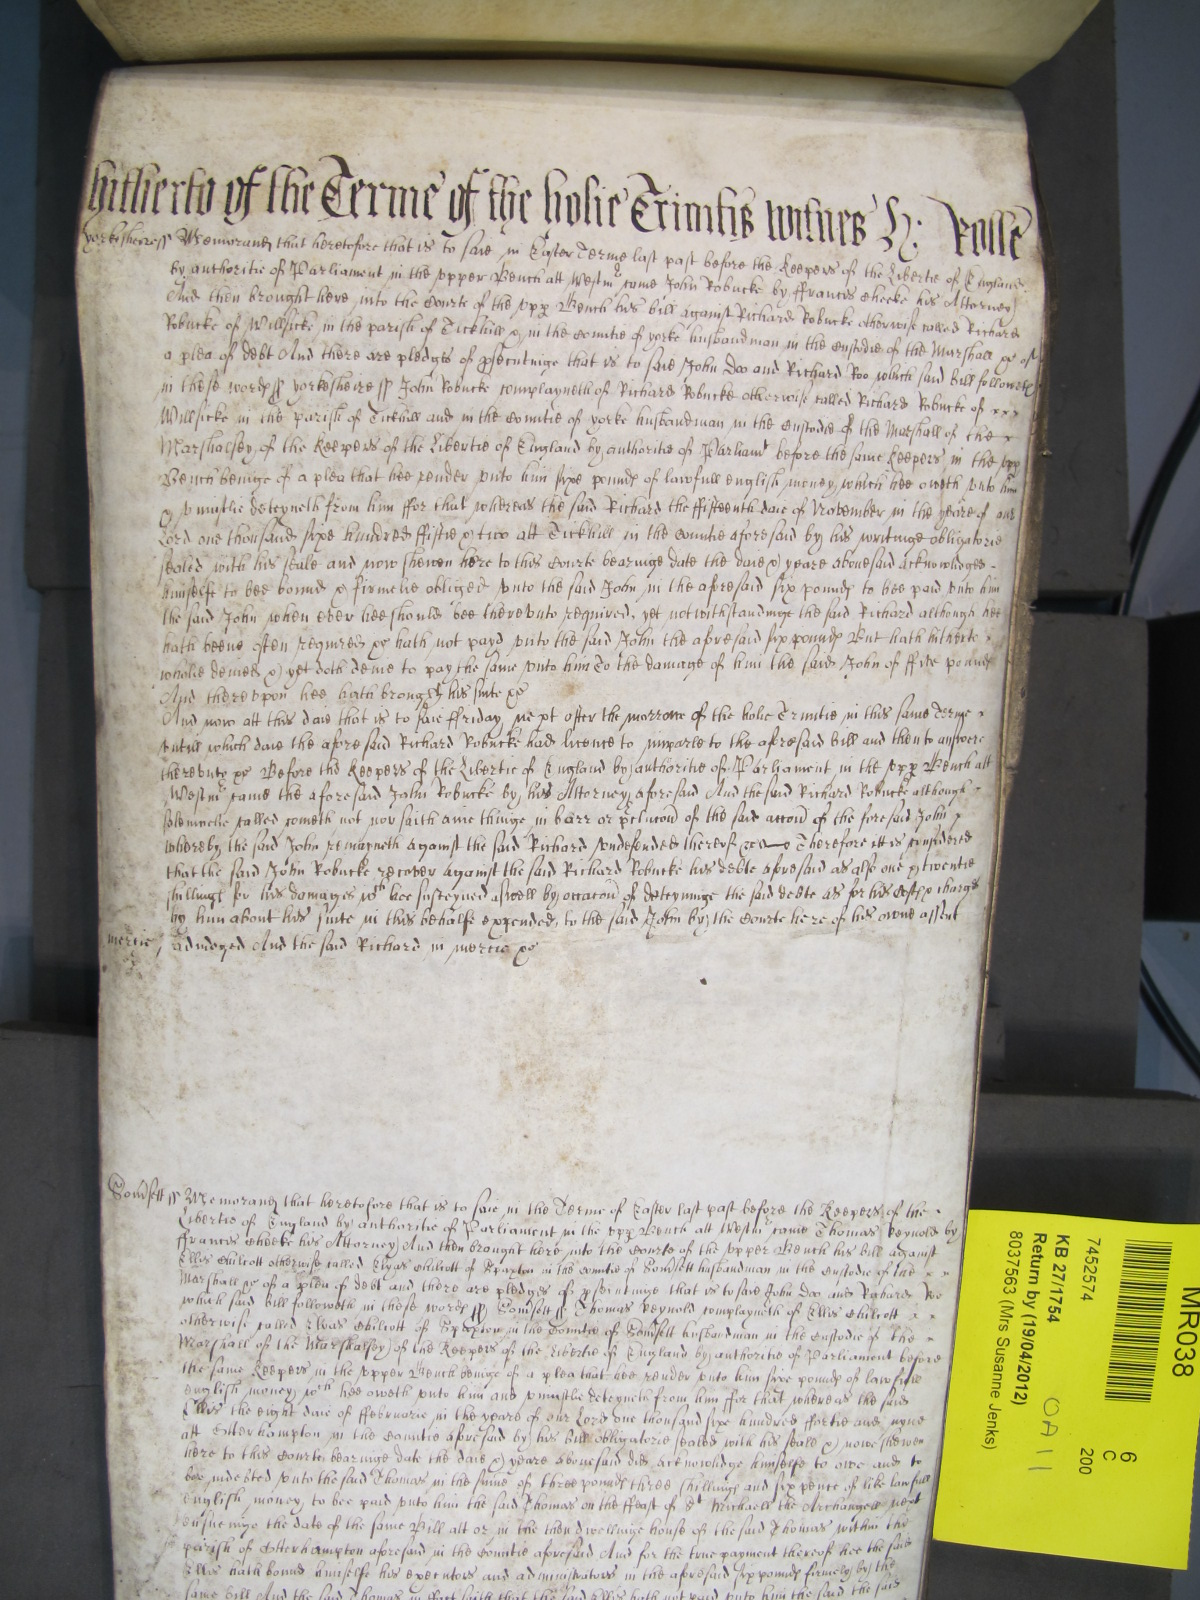 hitherto of the Terme of the holie Trinitie witnes H: Rolle
Yorkesheire ss Memorand that heretofore that is to saie in Easter Terme last past before the Keepers of the Libertie of England
by authoritie of Parliament in the vpper Bench att Westm came John Robucke by ffrancis Cheeke his Attorney
And then brought here into the Courte of the vpp Bench his bill against Richard Robucke otherwise called Richard
Robucke of Willsicke in the parish of Tickhill & in the Countie of yorke husbandman in the Custodie of the Marshall &c of
a plea of debt And there are pledges of psecutinge that is to saie John Doo and Richard Roo which said bill followeth
in these words ss yorkesheire ss John Robucke complayneth of Richard Robucke otherwise called Richard Robucke of
Willsicke in the parish of Tickhill and in the Countie of yorke husbandman in the Custodie of the Marshall of the
Marshalsey of the Keepers of the Libertie of England by authoritie of Parliamt before the same Keepers in the vpp
Bench beinge of a plea that hee render vnto him sixe pounds of lawfull english money which hee oweth vnto him
& vniustlie deteyneth from him ffor that whereas the said Richard the ffifteenth daie of November in the yeare of our
Lord one thousand sixe hundred ffiftie & two att Tickhill in the Countie aforesaid by his writinge obligatorie
sealed with his seale and now shewen here to this Courte bearinge date the daie & yeare abovesaid acknowledged
himselfe to bee bound & firmelie obliged vnto the said John in the aforesaid six pounds to bee paid vnto him
the said John when ever hee should bee therevnto required, yet notwithstandinge the said Richard although hee
hath beene often required &c hath not payd vnto the said John the aforesaid six pounds But hath hitherto
wholie denied & yet doth denie to pay the same vnto him To the damage of him the said John of ffive pounds
And therevpon hee hath brought his suite &c
And now att this daie that is to saie ffriday next after the morrow of the holie Trinitie in this same Terme
vntill which daie the aforesaid Richard Robucke had licence to imparle to the aforesaid bill and then to answere
therevnto &c Before the Keepers of the Libertie of England by authoritie of Parliament in the vpp Bench att
Westm came the aforesaid John Robucke by his Attorney aforesaid And the said Richard Robucke although
solemnelie called cometh not nor saith anie thinge in barr or pclucon of the said accon of the foresaid John
whereby the said John remayneth against the said Richard vndefended thereof &c Therefore itt is considered
that the said John Robucke recover against the said Richard Robucke his debte aforesaid as also one & twentie
shillings for his damages wch hee susteyned aswell by occacon of deteyninge the said debte as for his costs & charges
by him about his suite in this behalfe expended, to the said John by the Courte here of his owne assent
mercie adiudged And the said Richard in mercie &c
Somsett ss Memorand that heretofore that is to saie in the Terme of Easter last past before the Keepers of the
Libertie of England by authoritie of Parliament in the vpp Bench att Westm came Thomas Reynold by
ffrancis Cheeke his Attorney And then brought here into the Courte of the vpper Bench his bill against
Ellis Chilcott otherwise called Elyas Chilcott of Spaxton in the Countie of Somsett husbandman in the Custodie of the
Marshall &c of a plea of debt and there are pledges of psecutinge that is to saie John Doo and Richard Roo
which said bill followeth in these words ss Somsett ss Thomas Reynold complayneth of Ellis Chilcott
otherwise called Elias Chilcott of Spaxton in the Countie of Somsett husbandman in the Custodie of the
Marshall of the Marshalsey of the Keepers of the Libertie of England by authoritie of Parliament before
the same Keepers in the vpper Bench beinge of a plea that hee render vnto him sixe pounds of lawfull
english money wch hee oweth vnto him and vniustlie deteyneth from him ffor that whereas the said
Ellis the eight daie of ffebruarie in the yeare of our Lord one thousand sixe hundred fortie and nyne
att Otterhampton in the Countie aforesaid by his Bill obligatorie sealed with his seale & nowe shewen
here to this Courte bearinge date the daie & yeare abovesaid did acknowledge himselfe to owe and to
bee indebted vnto the said Thomas in the summe of three pounds three shillings and six pence of like lawfull
english money, to bee paid vnto him the said Thomas on the ffeast of St Michaell the Archangell next
ensueinge the date of the same Bill att or in the then dwellinge house of the said Thomas within the
parish of Otterhampton aforesaid in the Countie aforesaid And for the true payment thereof hee the said
Ellis hath bound himselfe his executors and administrators in the aforesaid six pounds firmely by the
same Bill And the said Thomas in fact saith that the said Ellis hath not paid vnto him the said
MR038
6
C
200
7452574
KB 27/1754
Return by (19/04/2012)
8037563 (Mrs Susanne Jenks)
OA 11